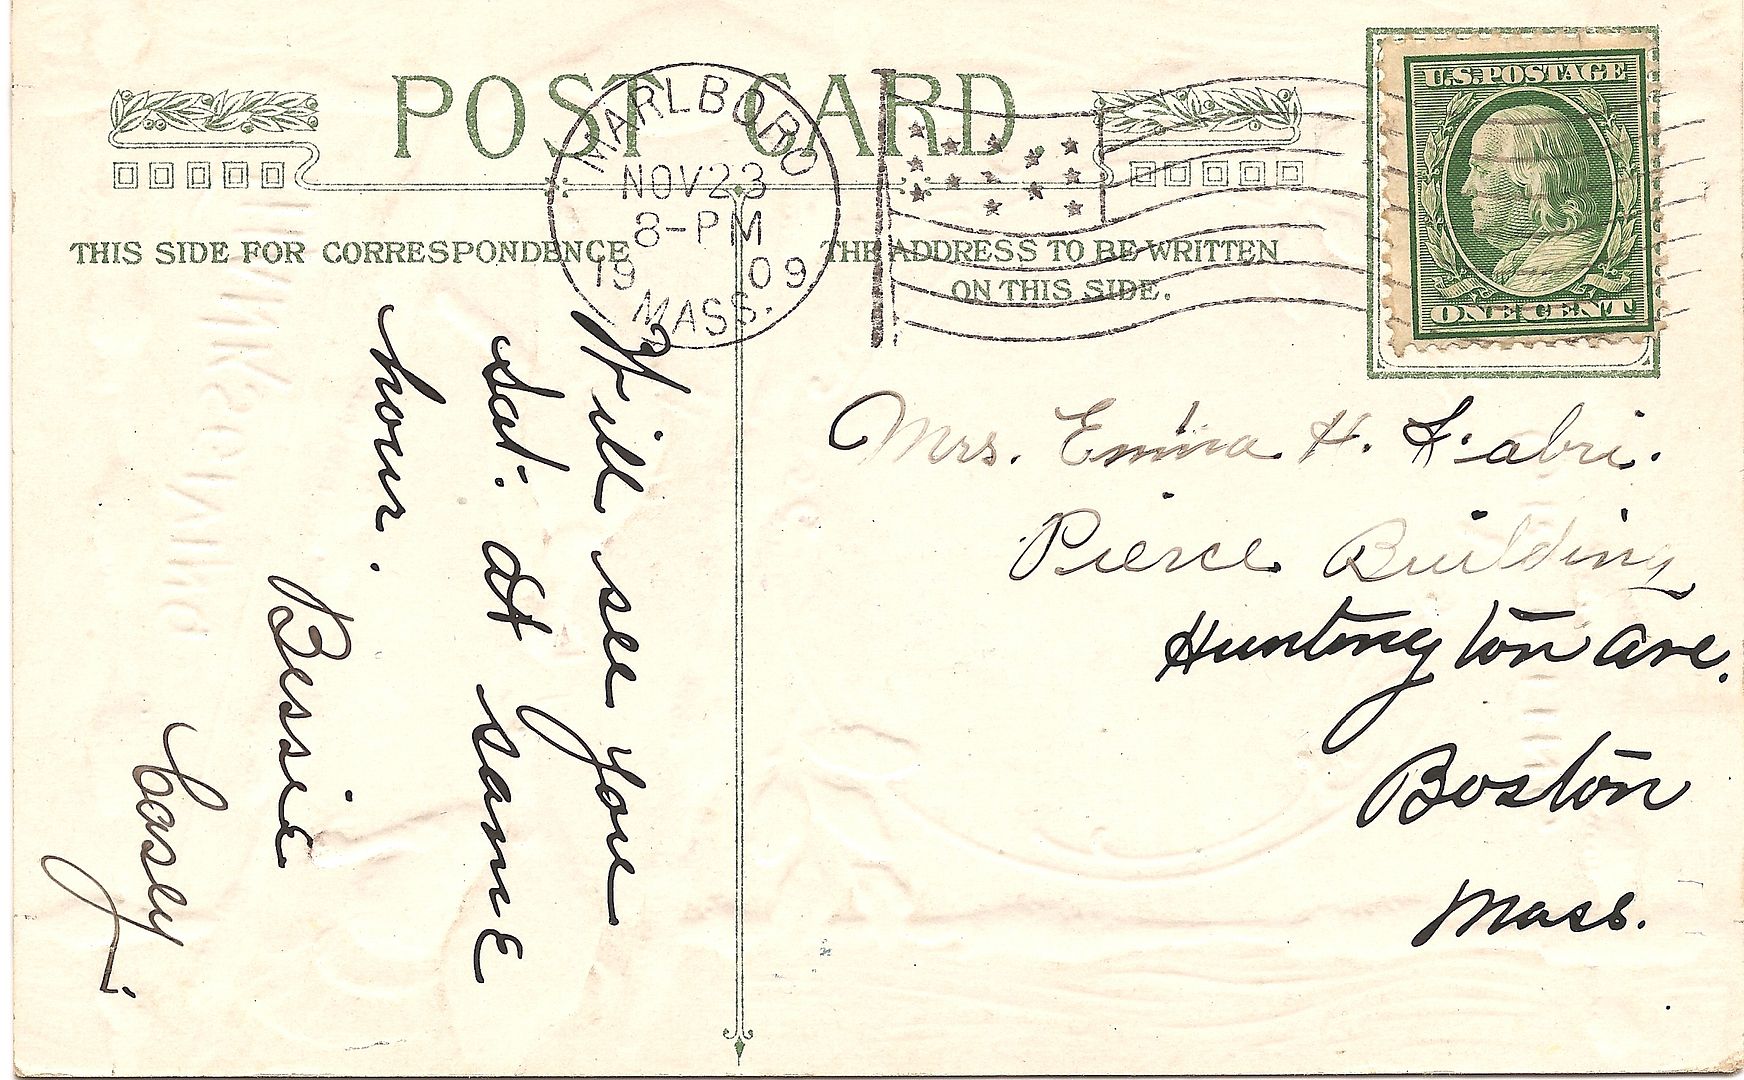 POST CARD
MARLBORO
NOV 23
8-PM
1909
MASS.
U.S. POSTAGE
ONE CENT
THIS SIDE FOR CORRESPONDENCE
THE ADDRESS TO BE WRITTEN
ON THIS SIDE.
Will see you
Sat. at same
hour.
Bessie
Mrs. Emma H.
Pierce Building
Huntington Ave.
Boston
Mass.